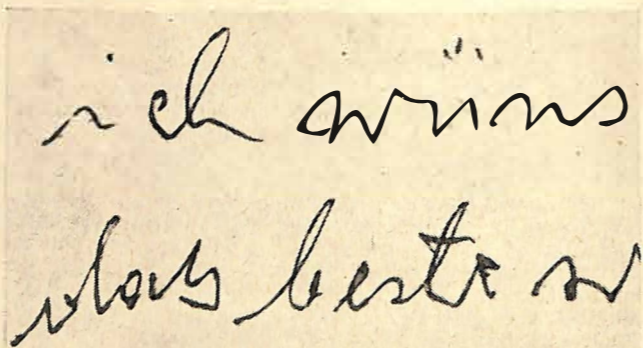 ich wüns
das beste